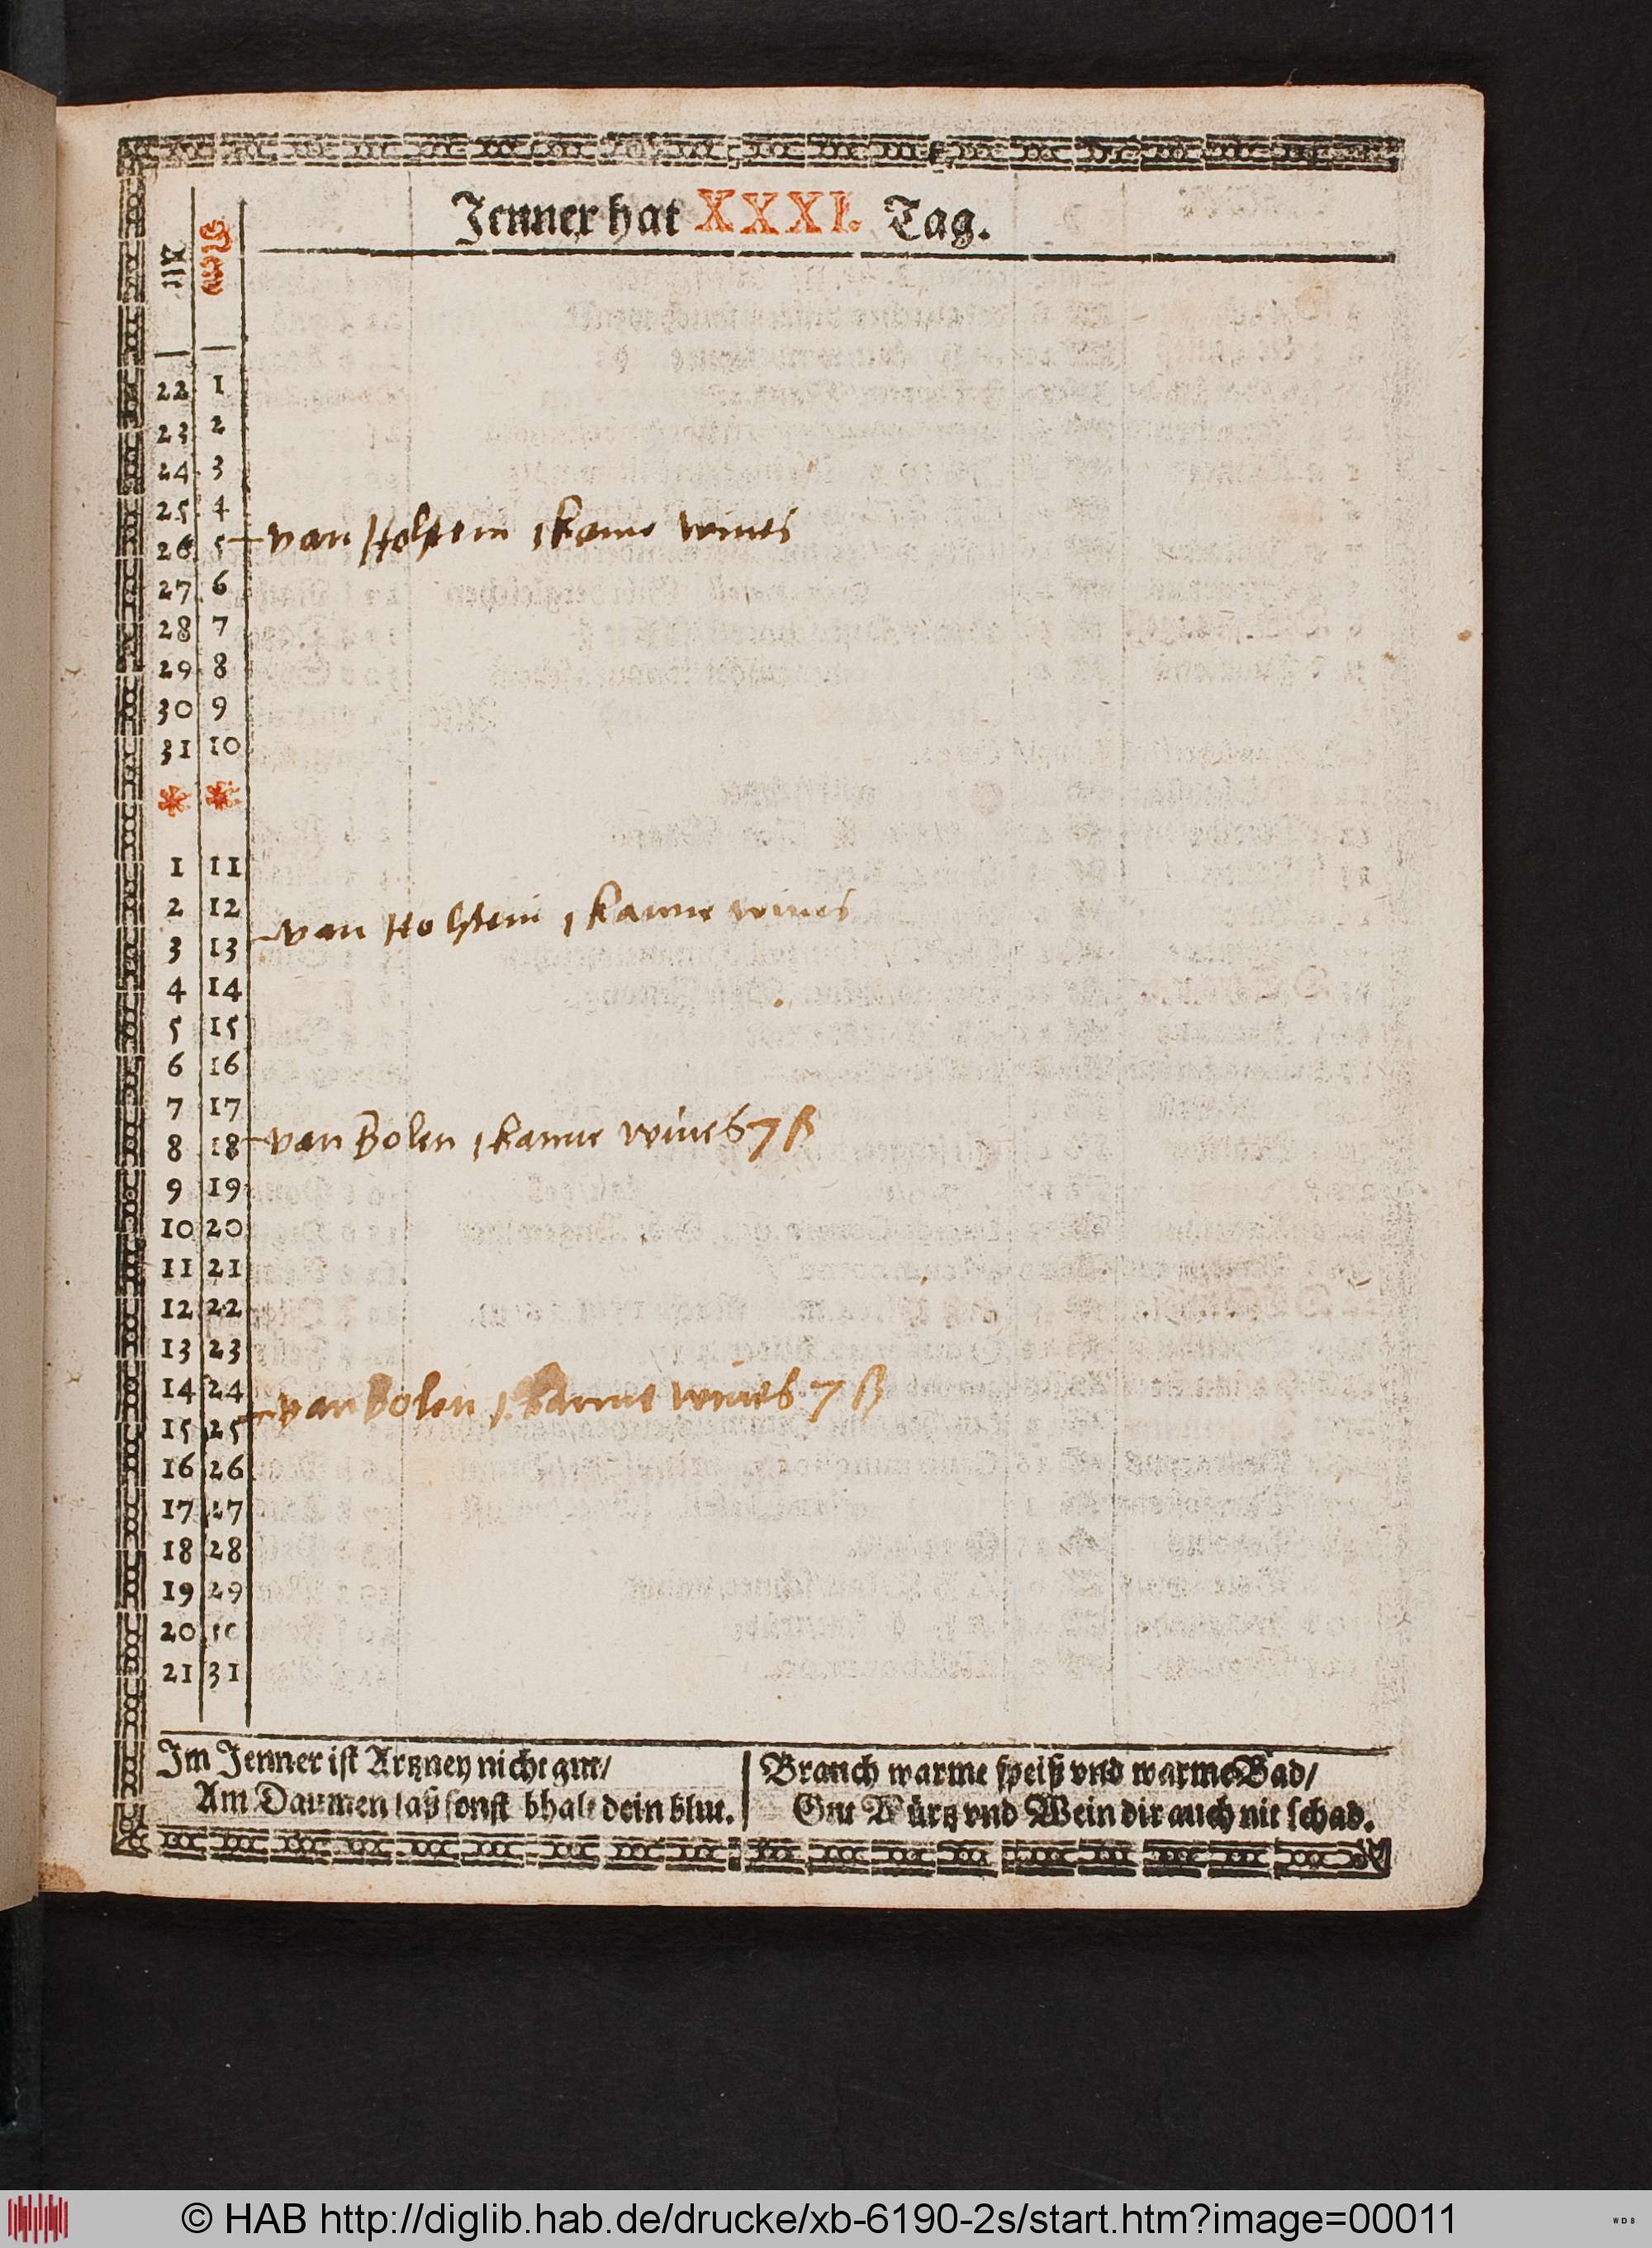 Jenner hat XXXI. Tag.
Alt New
22 1
23 2
24 3
25 4
26 5 van Holstein 1 kanne wines
27 6
28 7
29 8
30 9
31 10
* *
1 11
2 12
3 13 van Holstein 1 kanne wines
4 14
5 15
6 16
7 17
8 18 van Bolen 1 kanne wines 7 ß
9 19
10 20
11 21
12 22
13 23
14 24
15 25 van Bolen 1 kanne wines 7 ß
16 26
17 27
18 28
19 29
20 30
21 31
Im Jenner ist Artzney nicht gut/
Am Daumen laß sonst bhalt dein blut.
Brauch warme speiß vnd warme Bad/
Gut Würtz vnd Wein dir auch nit schad.
© HAB http://diglib.hab.de/drucke/xb-6190-2s/start.htm?image=00011
WDB